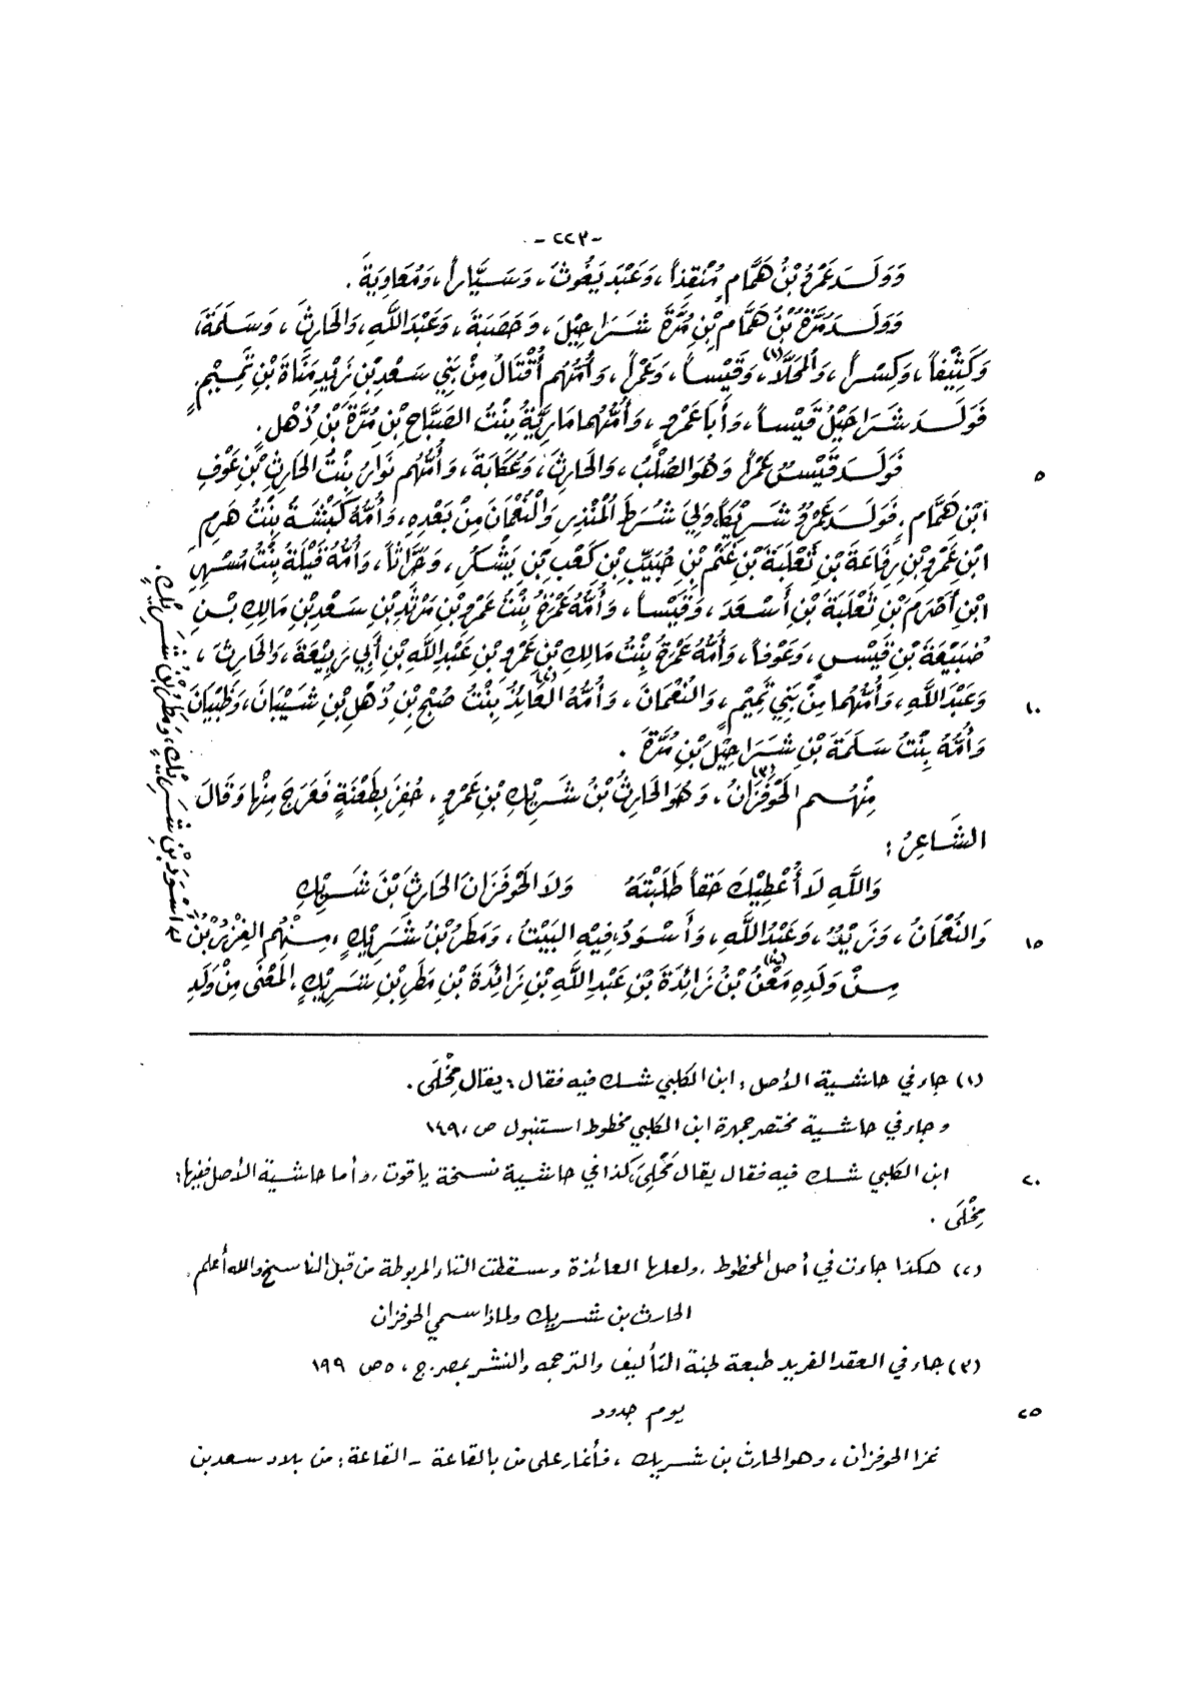 -٢٢٣-
وَوَلَدَ عَمْرُو بْنُ هَمَّامٍ مُنْقِذاً، وَعَبْدَ يَغُوثَ، وَسَيَّاراً، وَمُعَاوِيَةَ.
وَوَلَدَ مُرَّةُ بْنُ هَمَّامِ بْنِ مُرَّةَ شَرَاحِيْلَ، وَحَصَبَةَ، وَعَبْدَ اللَّهِ، وَالحَارِثَ، وَسَلَمَةَ،
وَكَثِيْفاً، وَكِسْراً، وَالمُحَلَّا(١)، وَقَيْساً، وَعَمْراً، وَأُمُّهُم أَقْتَالُ مِنْ بَنِي سَعْدِ بْنِ زَيْدِ مَنَاةَ بْنِ تَمِيْمٍ.
فَوَلَدَ شَرَاحِيْلُ قَيْساً، وَأَبَا عَمْرٍو، وَأُمُّهُمَا مَارِيَّةُ بِنْتُ الصَّبَّاحِ بْنِ مُرَّةَ بْنِ ذُهْلٍ.
فَوَلَدَ قَيْسٌ عَمْراً وَهُوَ الصُّلْبُ، وَالحَارِثَ، وَعُكَابَةَ، وَأُمُّهُم نَوَارُ بِنْتُ الحَارِثِ بْنِ عَوْفِ
٥
ابْنِ هَمَّامٍ. فَوَلَدَ عَمْرٌو شَرِيْكاً، وَلِيَ شُرَطَ المُنْذِرِ وَالنُّعْمَانِ مِنْ بَعْدِهِ، وَأُمُّهُ كَبْشَةُ بِنْتُ هَرِمِ
ابْنِ عَمْرِو بْنِ رِفَاعَةَ بْنِ ثَعْلَبَةَ بْنِ غَنْمِ بْنِ حُبَيِّبِ بْنِ كَعْبِ بْنِ يَشْكُرٍ، وَحَرَّاثاً، وَأُمُّهُ قَيْلَةُ بِنْتُ مُسْهِرِ
ابْنِ أَصْرَمَ بْنِ ثَعْلَبَةَ بْنِ أَسْعَدَ، وَقَيْساً، وَأُمُّهُ عَمْرَةُ بِنْتُ عَمْرِو بْنِ مَرْثَدِ بْنِ سَعْدِ بْنِ مَالِكِ بْنِ
ضُبَيْعَةَ بْنِ قَيْسٍ، وَعَوْفاً، وَأُمُّهُ عَمْرَةُ بِنْتُ مَالِكِ بْنِ عَمْرِو بْنِ عَبْدِ اللَّهِ بْنِ أَبِي رَبِيْعَةَ، وَالحَارِثَ،
وَعَبْدَ اللَّهِ، وَأُمُّهُمَا مِنْ بَنِي تَمِيْمٍ، وَالنُّعْمَانَ، وَأُمُّهُ العَائِذُ(٢) بِنْتُ صُبْحِ بْنِ ذُهْلِ بْنِ شَيْبَانَ، وَظَبْيَانَ
١٠
وَأُمُّهُ بِنْتُ سَلَمَةَ بْنِ شَرَاحِيْلَ بْنِ مُرَّةَ.
مِنْهُم الحَوْفَزَانُ(٣)، وَهُوَ الحَارِثُ بْنُ شَرِيْكِ بْنِ عَمْرٍو، حُفِزَ بِطَعْنَةٍ فَعَرَجَ مِنْهَا وَقَالَ
الشَّاعِرُ:
وَاللَّهِ لَا أُعْطِيْكَ حَقاً طَلَبْتَهُ وَلَا الحَوْفَزَانَ الحَارِثَ بْنَ شَرِيْكِ
وَالنُّعْمَانُ، وَزَيْدٌ، وَعَبْدُ اللَّهِ، وَأَسْوَدُ، فِيْهِ البَيْتُ، وَمَطَرُ بْنُ شَرِيْكٍ، مِنْهُم الغِزْرُ بْنُ
١٥
أَسْوَدَ بْنِ شَرِيْكٍ، وَمَطَرُ بْنُ شَرِيْكٍ.
مِنْ وَلَدِهِ مَعْنُ(٤) بْنُ زَائِدَةَ بْنِ عَبْدِ اللَّهِ بْنِ زَائِدَةَ بْنِ مَطَرِ بْنِ شَرِيْكٍ، المَعْنَى مِنْ وَلَدِ
(١) جاء في حاشية الأصل: ابن الكلبي شك فيه فقال: يقال مِحْلَى.
وجاء في حاشية مختصر جمهرة ابن الكلبي مخطوط استنبول ص، ١٤٩
ابن الكلبي شك فيه فقال يقال مَحْلَى، كذا في حاشية نسخة ياقوت، وأما حاشية الأصل ففيها:
٢٠
مِحْلَى.
(٢) هكذا جاءت في أصل المخطوط، ولعلها العائذة وسقطت التاء المربوطة من قبل الناسخ والله أعلم.
الحارث بن شريك ولماذا سمي الحوفزان
(٣) جاء في العقد الفريد طبعة لجنة التأليف والترجمة والنشر بمصر. ج، ٥ ص ١٩٩
يوم جدود
٢٥
غزا الحوفزان، وهو الحارث بن شريك، فأغار على من بالقاعة - القاعة: من بلاد سعد بن